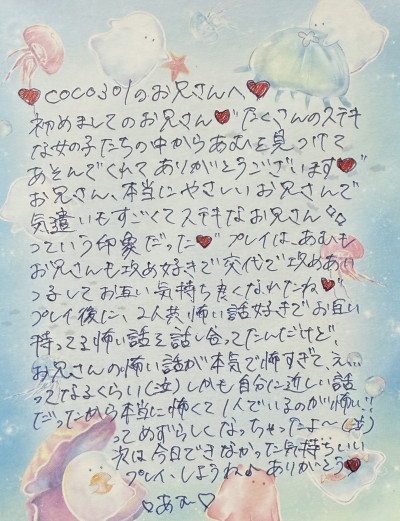 ♥COCO301のお兄さんへ♥
初めましてのお兄さん♥たくさんのステキ
な女の子たちの中からあむを見つけて
あそんでくれてありがとうございます♥
お兄さん、本当にやさしいお兄さんで
気遣いもすごくてステキなお兄さん◇◇
っていう印象だった♥プレイは、あむも
お兄さんも攻め好きで交代で攻めあい
っ子してお互い気持ち良くなれたね♥
プレイ後に、2人共怖い話好きでお互い
持ってる怖い話を話し合ってたんだけど、
お兄さんの怖い話が本気で怖すぎて、え...
ってなるくらい(泣)しかも自分に近しい話
だったから本当に怖くて1人でいるのが怖い!!
ってめずらしくなっちゃったよ〜(泣)
次は今日できなかった気持ちいい
プレイ、しようね♪ありがとう♥
♡あむ♡